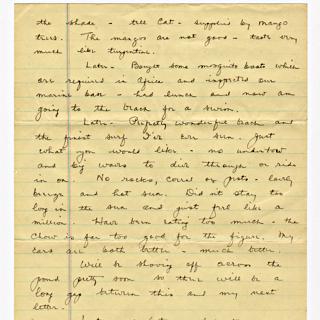 the shade - tell Cat - supplied by mango
trees. The mangos are not good - taste very
much like turpentine.
Later - Bought some mosquito boots which
are required in Africa and inspected our
marine bar - had lunch and now am
going to the beach for a swim.
Later - Perfectly wonderful beach and
the finest surf I've ever seen. Just
what you would like - no undertow
and big waves to dive through or ride
in on. No rocks, coral or pests - lovely
breeze and hot sun. Didn't stay too
long in the sun and just feel like a
million. Have been eating too much - the
chow is far too good for the figure. My
ears are both better - much better.
Will be shoving off across the
pond pretty soon so there will be a
long gap between this and my next
letter.